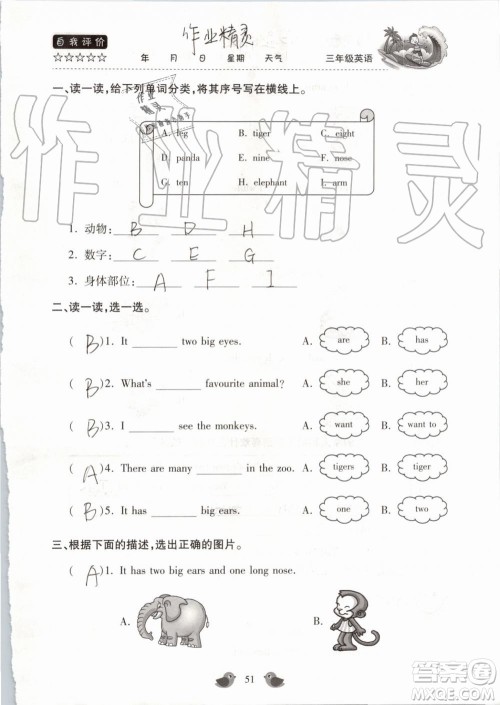 自我评价 作业精灵
☆☆☆☆☆ 年 月 日 星期 天气 三年级英语
一、读一读,给下列单词分类,将其序号写在横线上。
A. leg B. tiger C. eight
D. panda E. nine F. nose
G. ten H. elephant I. arm
1. 动物: B D H
2. 数字: C E G
3. 身体部位: A F I
二、读一读,选一选。
( B )1. It ______ two big eyes. A. are B. has
( B )2. What's ______ favourite animal? A. she B. her
( B )3. I ______ see the monkeys. A. want B. want to
( A )4. There are many ______ in the zoo. A. tigers B. tiger
( B )5. It has ______ big ears. A. one B. two
三、根据下面的描述,选出正确的图片。
( A )1. It has two big ears and one long nose.
A. B.
51
作业精灵
答案圈